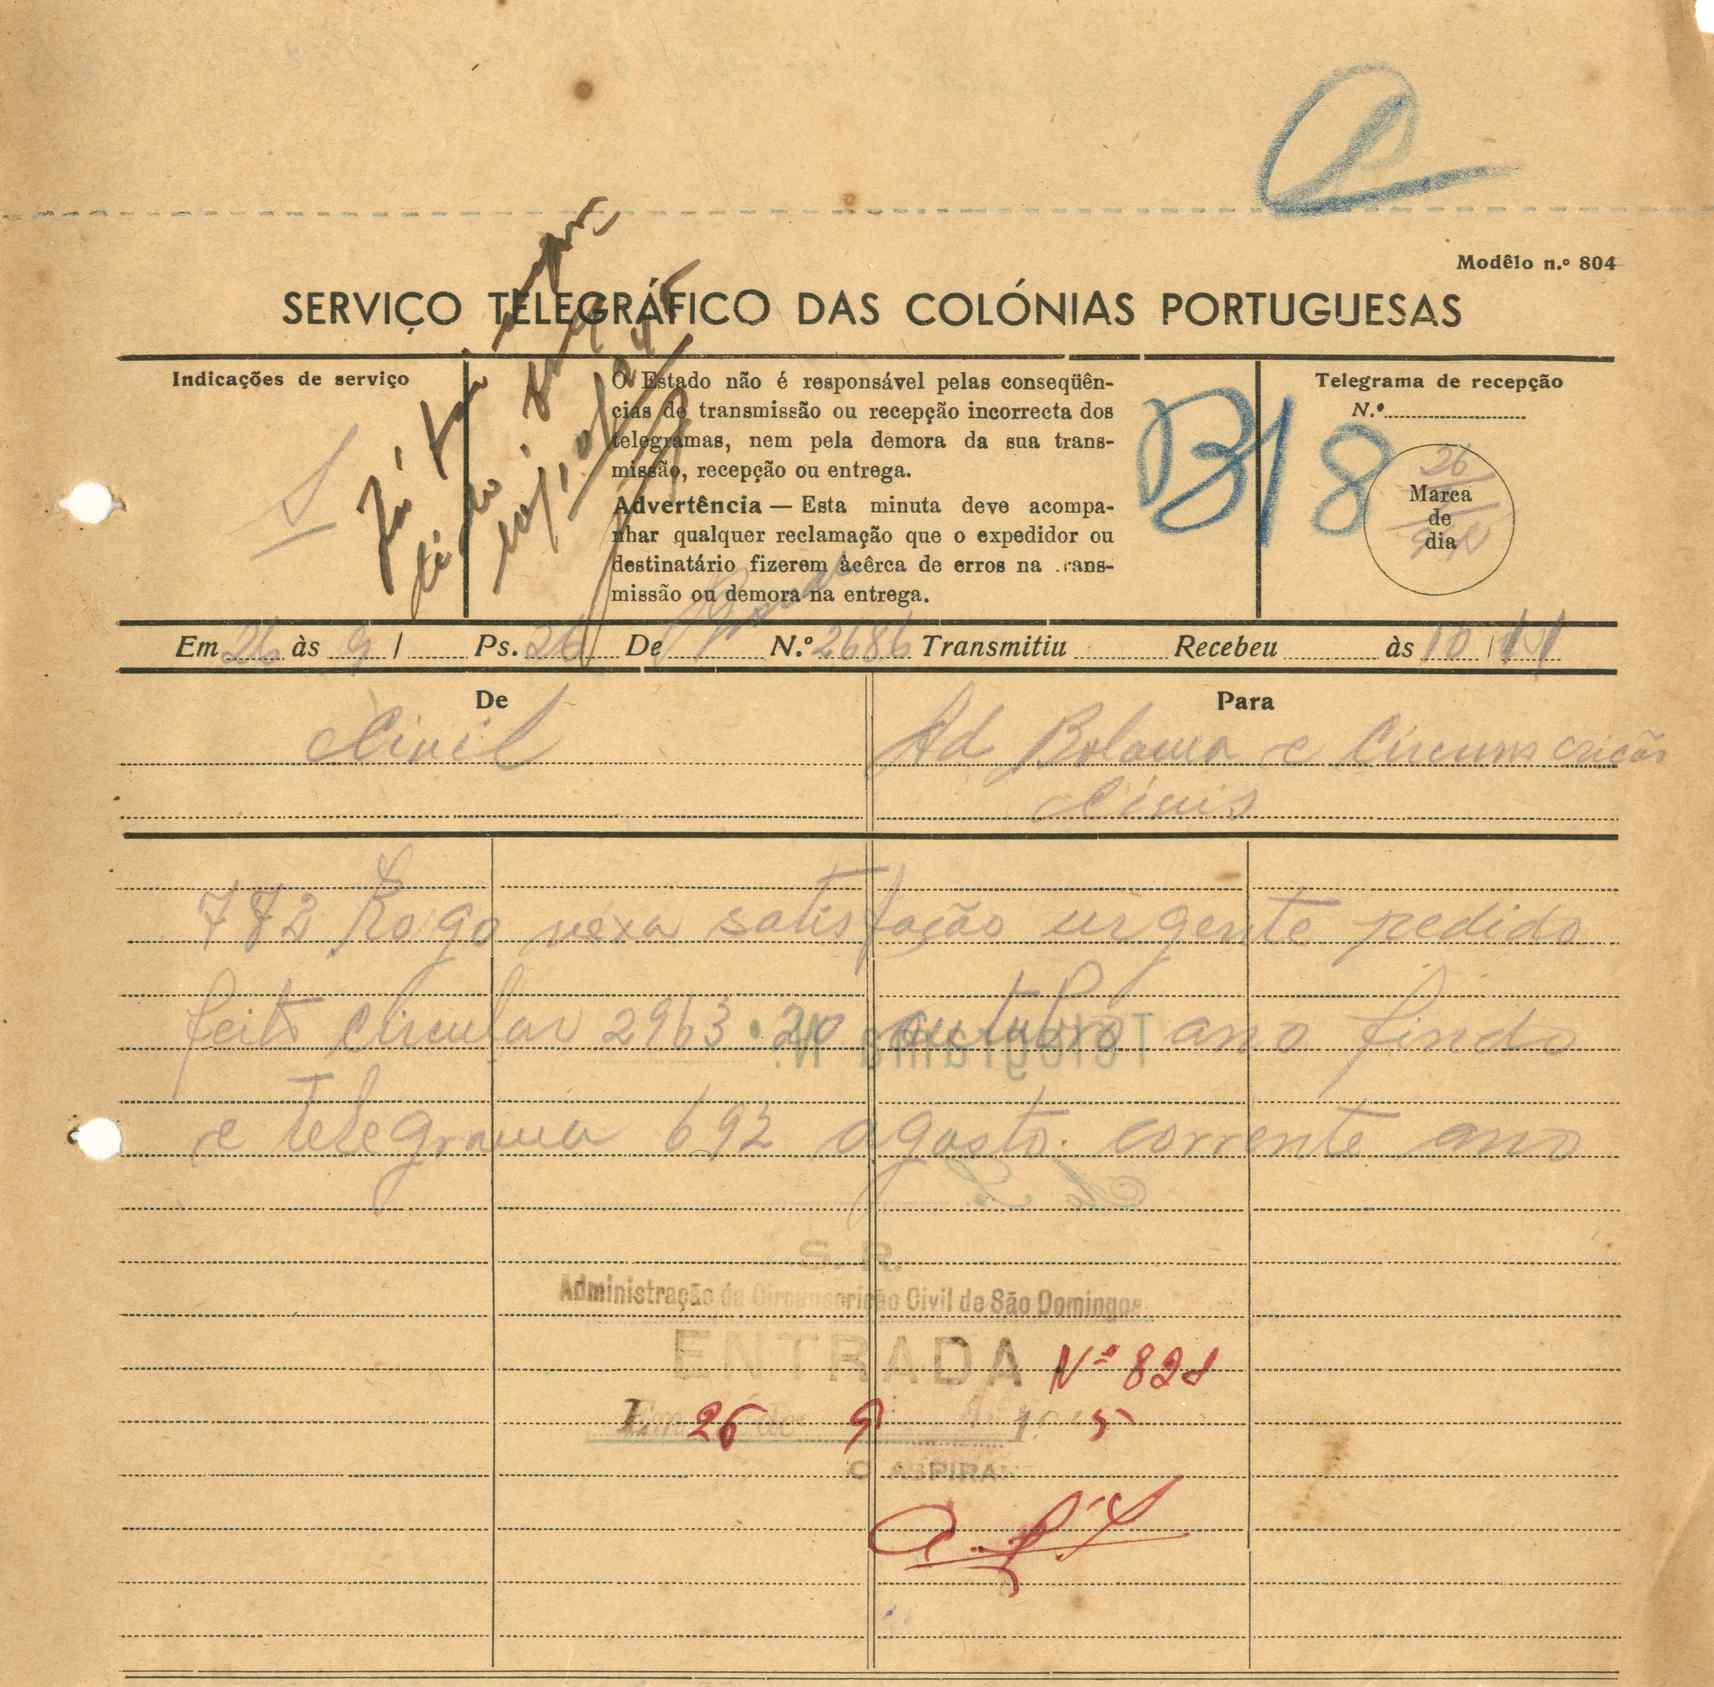 Modêlo n.º 804
SERVIÇO TELEGRÁFICO DAS COLÓNIAS PORTUGUESAS
Indicações de serviço
O Estado não é responsável pelas conseqüên-
cias de transmissão ou recepção incorrecta dos
telegramas, nem pela demora da sua trans-
missão, recepção ou entrega.
Advertência — Esta minuta deve acompa-
nhar qualquer reclamação que o expedidor ou
destinatário fizerem àcêrca de erros na trans-
missão ou demora na entrega.
B18
Telegrama de recepção
N.º
26
Marca
de
dia
Em 26 às 9 / Ps. 26 De N.º 2686 Transmitiu Recebeu às 10
De
Civil
Para
Ad Bolama e Circunscrição
Civis
772 Rogo vexa satisfação urgente pedido
feito circular 2963 20 outubro ano findo
e telegrama 692 agosto. corrente ano
Telegrama N.º
S. R.
Administração da Circunscrição Civil de São Domingos
ENTRADA Nº 828
Em 26 de 9 5
O ASPIRAN